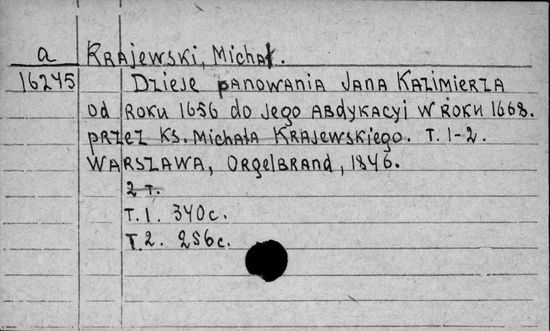 a KRAJEWSKI, Michał.
16245 Dzieje panowania Jana Kazimierza
od roku 1656 do jego abdykacyi w roku 1668.
przez Ks. Michała Krajewskiego. T. 1-2.
Warszawa, Orgelbrand, 1846.
2 T.
T. 1. 340c.
T. 2. 256c.